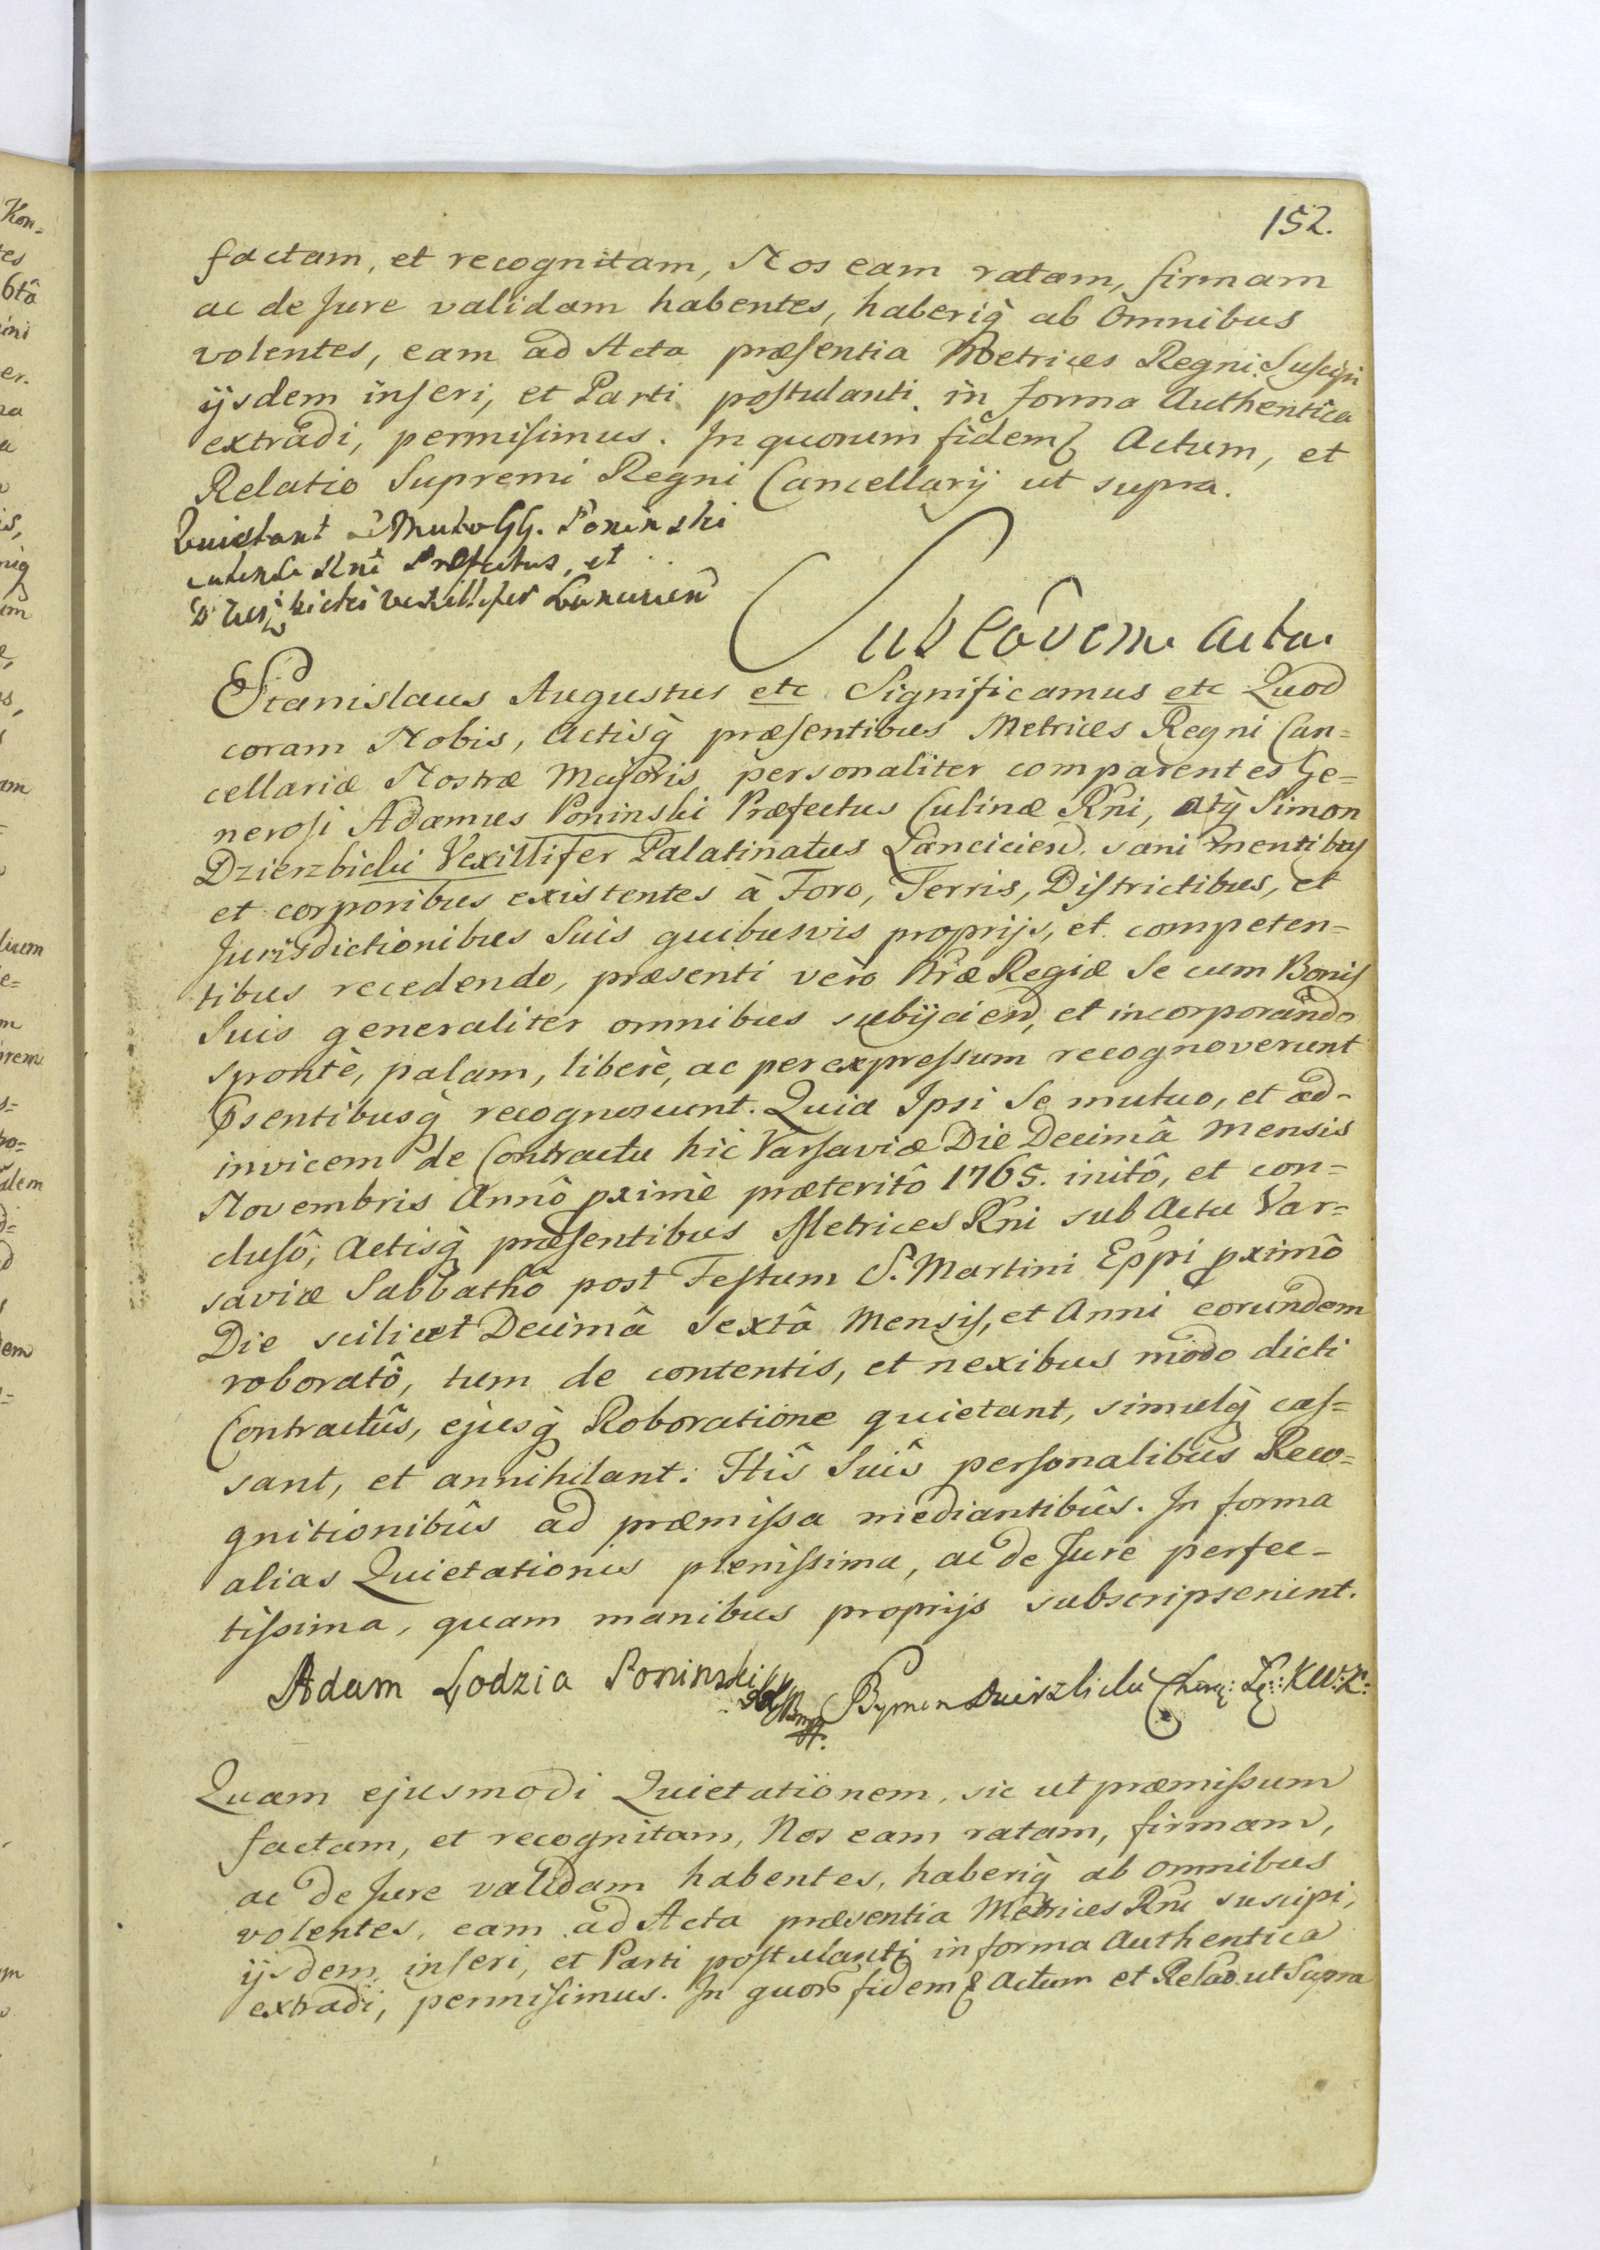 152.
factam, et recognitam, Nos eam ratam, firmam
ac de Jure validam habentes, haberiq̀ ab Omnibus
volentes, eam ad Acta præsentia Metrices Regni Suscipi
ijsdem inseri, et Parti postulanti in forma Authentica
extradi, permisimus. In quorum fidem Actum, et
Relatio Supremi Regni Cancellarij ut supra.
Quietant se Mutuo GG. Poninski
Culinæ Rni Præfectus, et
Dzierzbicki Vexillifer Lancicien
Sub eôdem Actu.
Stanislaus Augustus etc Significamus etc Quod
coram Nobis, Actisq̀ præsentibus Metrices Regni Can=
cellariæ Nostræ Majoris personaliter comparentes Ge=
nerosi Adamus Poninski Præfectus Culinæ Rni, atq̀ Simon
Dzierzbicki Vexillifer Palatinatus Lancicien. sani mentibus
et corporibus existentes à Foro, Terris, Districtibus, et
Jurisdictionibus Suis quibusvis proprijs, et competen=
tibus recedendo, præsenti vero Præ Regiæ Se cum Bonis
Suis generaliter omnibus subijciend, et incorporando
spontè, palam, liberè, ac per expressum recognoverunt
Psentibusq̀ recognoscunt. Quia Ipsi Se mutuo, et ad-
invicem de Contractu hic Varsaviæ Die Decimâ Mensis
Novembris Annô pximè præteritô 1765. initô, et con=
clusô, Actisq̀ præsentibus Metrices Rni sub Actu Var=
saviæ Sabbathô post Festum S. Martini Eppi pximô
Die scilicet Decimâ Sextâ Mensis, et Anni eorundem
roboratô, tum de contentis, et nexibus modo dicti
Contractûs, ejusq̀ Roboratione quietant, simulq̀ cas=
sant, et annihilant. Hîs Suîs personalibus Reco=
gnitionibûs ad præmissa mediantibûs. In forma
alias Quietationis plenissima, ac de Jure perfec-
tissima, quam manibus proprijs subscripserunt.
Adam Łodzia Poninski Szymon Dzierzbicki Chorą: Łę: KW:Ł:
Quam ejusmodi Quietationem, sic ut præmissum
factam, et recognitam, Nos eam ratam, firmam,
ac de Jure validam habentes, haberiq̀ ab omnibus
volentes, eam ad Acta præsentia Metrices Rni suscipi,
ijsdem inseri, et Parti postulanti in forma Authentica
extradi, permisimus. In quor fidem Actum et Relao ut Supra